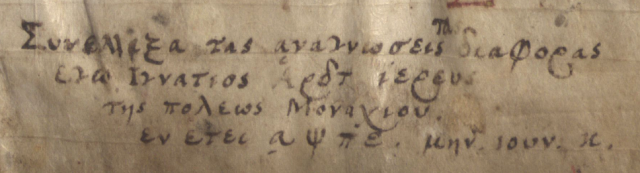 Συνελεξα τας αναγνωσεις τα διαφορας
εγω Ιγνατιος Αρδτ ιερευς
της πολεως Μοναχιου.
εν ετει α ψ π ε. μην. ιουν. κ.